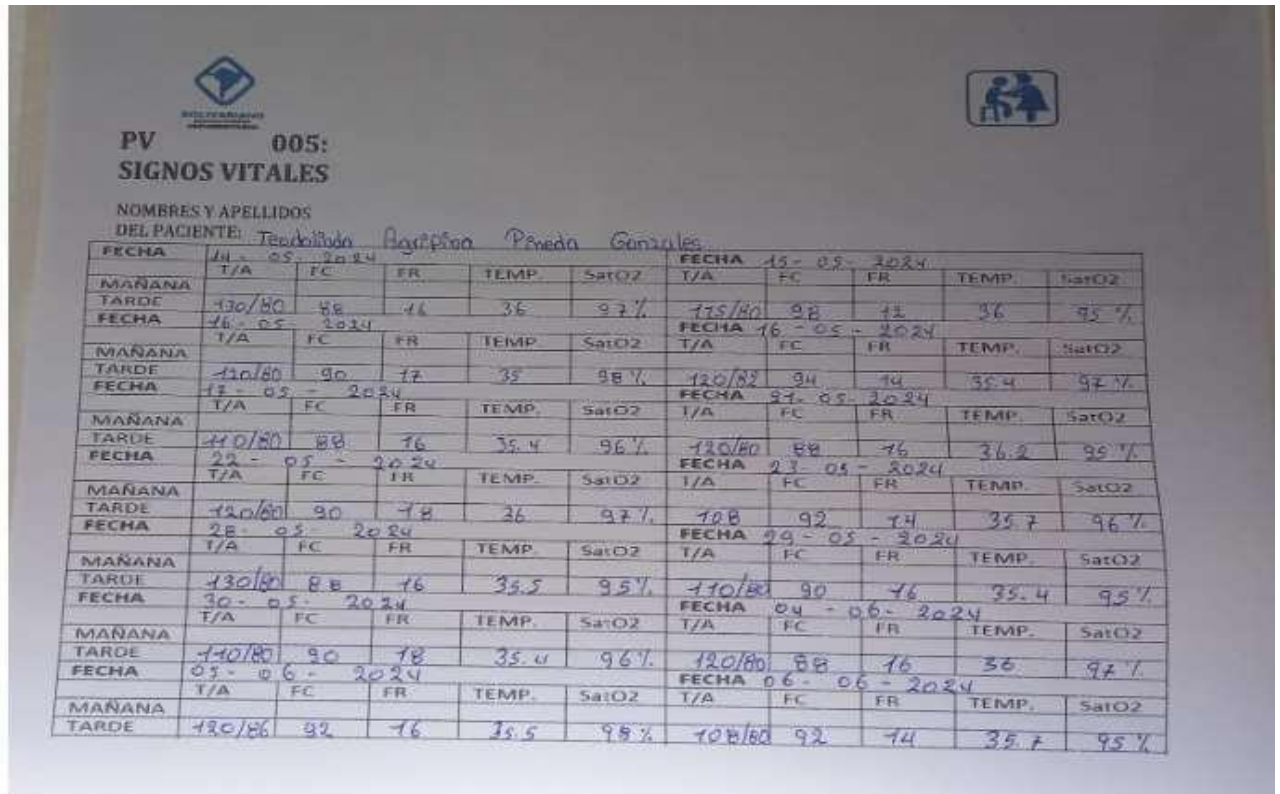 BOLIVARIANO
PV 005:
SIGNOS VITALES
NOMBRES Y APELLIDOS
DEL PACIENTE: Teodolinda Agripina Pineda Gonzales
FECHA 14 - 05 - 2024 FECHA 15 - 05 - 2024
T/A FC FR TEMP. SatO2 T/A FC FR TEMP. SatO2
MAÑANA
TARDE 130/80 88 16 36 97% 115/80 98 12 36 95%
FECHA 16 - 05 - 2024 FECHA 16 - 05 - 2024
T/A FC FR TEMP. SatO2 T/A FC FR TEMP. SatO2
MAÑANA
TARDE 120/80 90 17 35 98% 120/82 94 14 35.4 97%
FECHA 17 - 05 - 2024 FECHA 21 - 05 - 2024
T/A FC FR TEMP. SatO2 T/A FC FR TEMP. SatO2
MAÑANA
TARDE 110/80 88 16 35.4 96% 120/80 88 16 36.2 95%
FECHA 22 - 05 - 2024 FECHA 23 - 05 - 2024
T/A FC FR TEMP. SatO2 T/A FC FR TEMP. SatO2
MAÑANA
TARDE 120/80 90 18 36 97% 108 92 14 35.7 96%
FECHA 28 - 05 - 2024 FECHA 29 - 05 - 2024
T/A FC FR TEMP. SatO2 T/A FC FR TEMP. SatO2
MAÑANA
TARDE 130/80 88 16 35.5 95% 110/80 90 16 35.4 95%
FECHA 30 - 05 - 2024 FECHA 04 - 06 - 2024
T/A FC FR TEMP. SatO2 T/A FC FR TEMP. SatO2
MAÑANA
TARDE 110/80 90 18 35.4 96% 120/80 88 16 36 97%
FECHA 05 - 06 - 2024 FECHA 06 - 06 - 2024
T/A FC FR TEMP. SatO2 T/A FC FR TEMP. SatO2
MAÑANA
TARDE 120/86 92 16 35.5 98% 108/80 92 14 35.7 95%